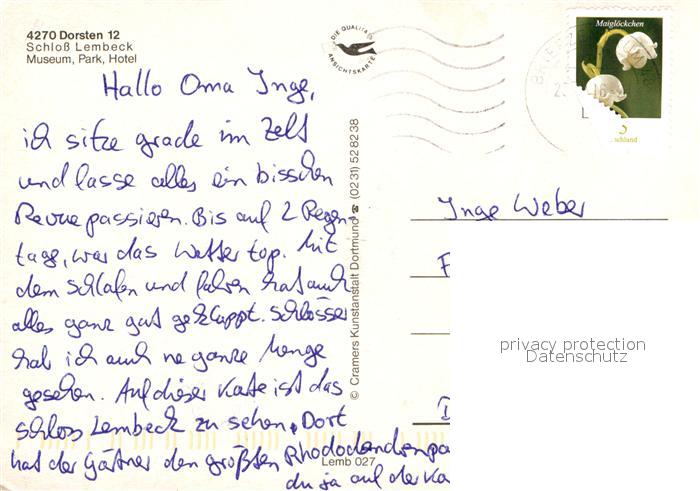 4270 Dorsten 12
Schloß Lembeck
Museum, Park, Hotel
DIE QUALITÄTS
ANSICHTSKARTE
Maiglöckchen
schland
Hallo Oma Inge,
ich sitze grade im Zelt
und lasse alles ein bisschen
Revue passieren. Bis auf 2 Regen-
tage, war das Wetter top. Mit
dem Schlafen und fahren hat auch
alles ganz gut geklappt. Schlösser
hab ich auch ne ganze Menge
gesehen. Auf dieser Karte ist das
Schloss Lembeck zu sehen. Dort
hat der Gärtner den größten Rhododendrenpa
du ja auf der Ka
© Cramers Kunstanstalt Dortmund ☎ (0231) 52 82 38
Lemb 027
Inge Weber
privacy protection
Datenschutz